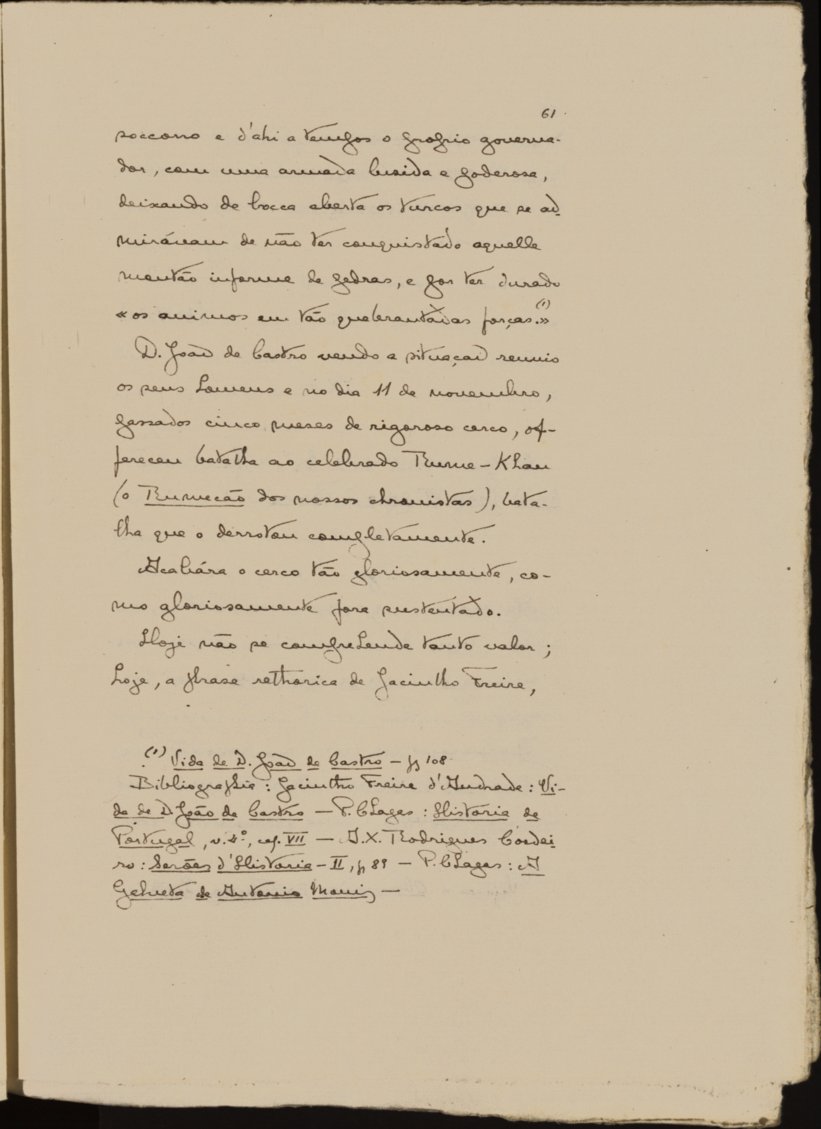 61
soccorro e d'ahi a tempos o proprio governa-
dor, com uma armada luzida e poderosa,
deixando de bocca aberta os turcos que se ad-
mirávam de não ter conquistádo aquelle
montão informe de pedras, e por ter durado
«os animos em tão quebrantadas forças.» (1)
D. João de Castro vendo a situação reuniu
os seus homens e no dia 11 de novembro,
passados cinco meses de rigoroso cerco, of-
fereceu batalha ao celebrado Rume-Khan
(o Rumecão dos nossos chronistas), bata-
lha que o derrotou completamente.
Acabára o cerco tão gloriosamente, co-
mo gloriosamente fora sustentado.
Hoje não se comprehende tanto valor;
hoje, a phrase rethorica de Jacintho Freire,
(1) Vida de D. João de Castro — pg 108
Bibliographia: Jacintho Freire d'Andrade: Vi-
da de D João de Castro — P. Chagas: Historia de
Portugal, v. 4º, cap. VII — A.X. Rodrigues Cordei
ro: Serões d'Historia - II, p 89 — P. Chagas: A
de Antonio Moniz —